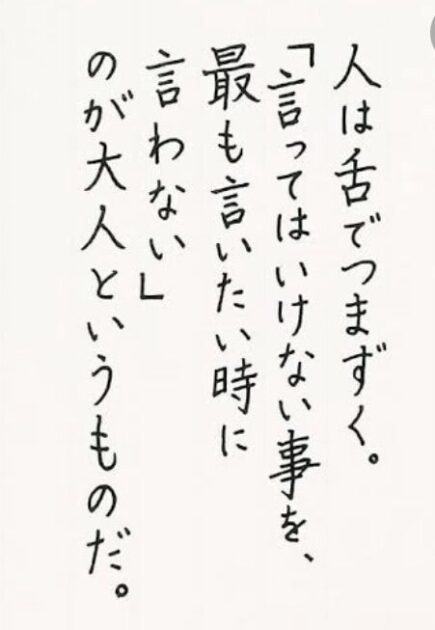 人は舌でつまずく。
「言ってはいけない事を、
最も言いたい時に
言わない」
のが大人というものだ。